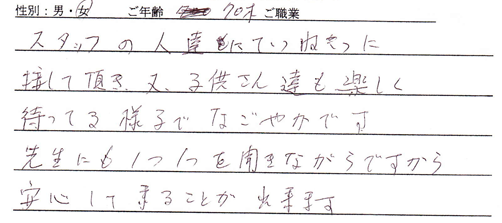 性別:男・女 ご年齢 70才 ご職業
スタッフの人達もていねいに
接して頂き、又、子供さん達も楽しく
待ってる様子でなごやかです
先生にも1つ1つを聞きながらですから
安心して来ることが出来ます